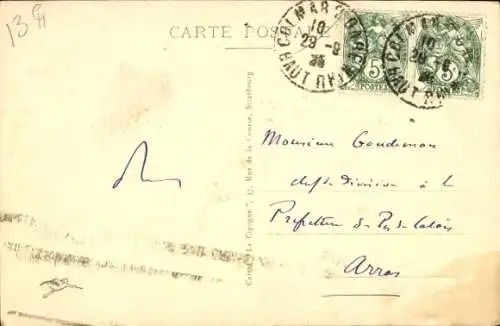 13
CARTE POSTALE
COLMAR GARE
10
29-8
HAUT RHIN
COLMAR
10
HAUT RHIN
5
POSTES
5
Cartes "La Cigogne", 17, Rue de la Course, Strasbourg
Monsieur Goudemon
chef de Division à la
Préfecture du Pas de Calais
Arras